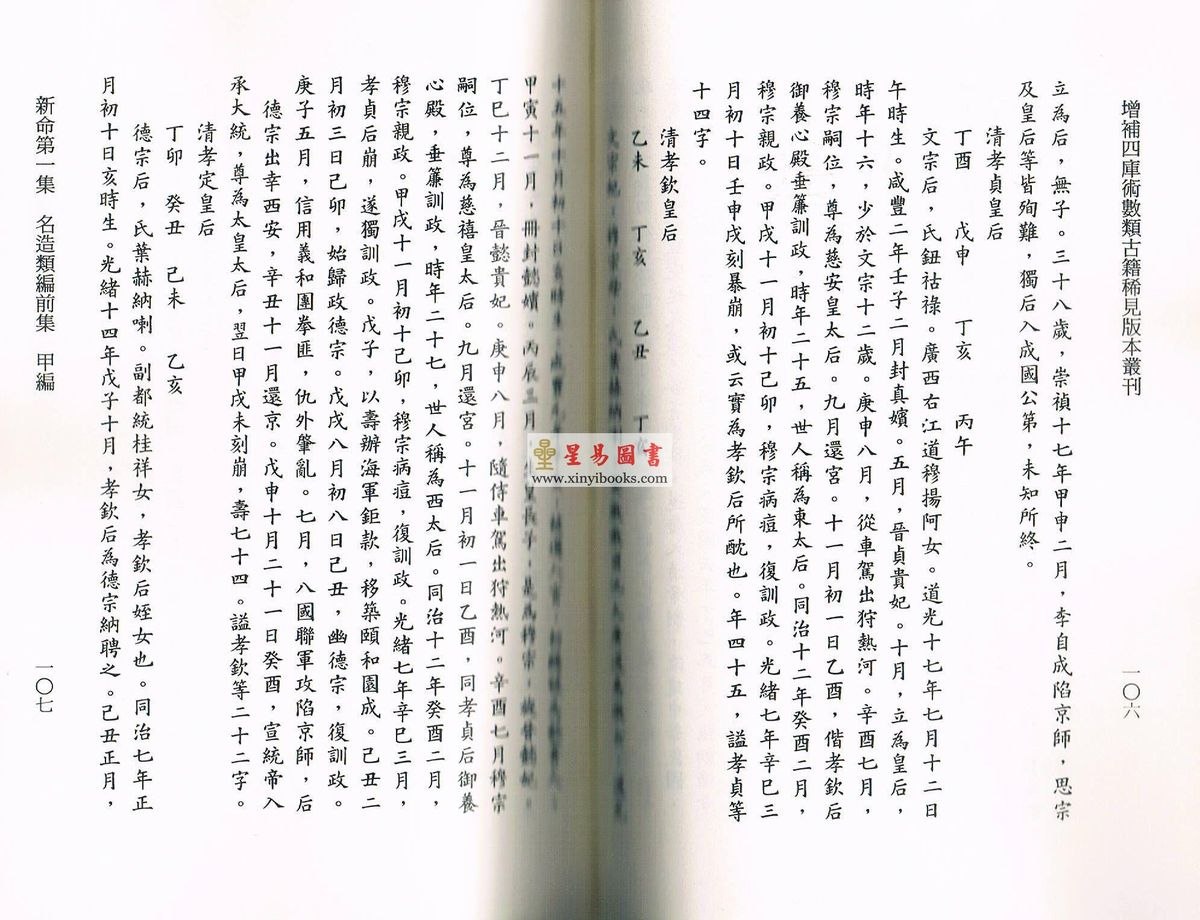 增補四庫術數類古籍稀見版本叢刊
一〇六
立為后，無子。三十八歲，崇禎十七年甲申二月，李自成陷京師，思宗
及皇后等皆殉難，獨后入成國公第，未知所終。
清孝貞皇后
丁酉　戊申　丁亥　丙午
文宗后，氏鈕祜祿。廣西右江道穆揚阿女。道光十七年七月十二日
午時生。咸豐二年壬子二月封真嬪。五月，晉貞貴妃。十月，立為皇后，
時年十六，少於文宗十二歲。庚申八月，從車駕出狩熱河。辛酉七月，
穆宗嗣位，尊為慈安皇太后。九月還宮。十一月初一日乙酉，偕孝欽后
御養心殿垂簾訓政，時年二十五，世人稱為東太后。同治十二年癸酉二月，
穆宗親政。甲戌十一月初十己卯，穆宗病痘，復訓政。光緒七年辛巳三
月初十日壬申戌刻暴崩，或云實為孝欽后所酖也。年四十五，謚孝貞等
十四字。
清孝欽皇后
乙未　丁亥　乙丑　丁
星易圖書
www.xinyibooks.com
甲寅十一月，冊封懿嬪。丙辰三月，生皇長子，是為穆宗，旋晉懿妃。
丁巳十二月，晉懿貴妃。庚申八月，隨侍車駕出狩熱河。辛酉七月穆宗
嗣位，尊為慈禧皇太后。九月還宮。十一月初一日乙酉，同孝貞后御養
心殿，垂簾訓政，時年二十七，世人稱為西太后。同治十二年癸酉二月，
穆宗親政。甲戌十一月初十己卯，穆宗病痘，復訓政。光緒七年辛巳三月，
孝貞后崩，遂獨訓政。戊子，以籌辦海軍鉅款，移築頤和園成。己丑二
月初三日己卯，始歸政德宗。戊戌八月初八日己丑，幽德宗，復訓政。
庚子五月，信用義和團拳匪，仇外肇亂。七月，八國聯軍攻陷京師，后
德宗出幸西安，辛丑十一月還京。戊申十月二十一日癸酉，宣統帝入
承大統，尊為太皇太后，翌日甲戌未刻崩，壽七十四。謚孝欽等二十二字。
清孝定皇后
丁卯　癸丑　己未　乙亥
德宗后，氏葉赫納喇。副都統桂祥女，孝欽后姪女也。同治七年正
月初十日亥時生。光緒十四年戊子十月，孝欽后為德宗納聘之。己丑正月，
新命第一集　名造類編前集　甲編
一〇七